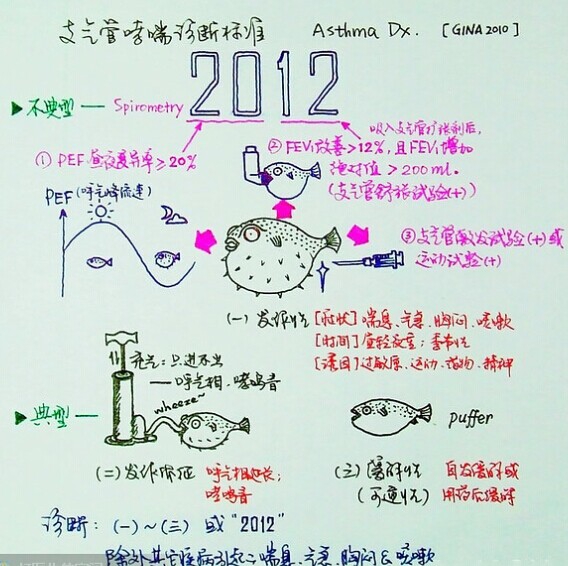 支气管哮喘诊断标准 Asthma Dx. [GINA 2010]
2012
▶不典型— Spirometry
吸入支气管扩张剂后,
① PEF 昼夜变异率≥20%
② FEV₁改善>12%, 且FEV₁增加
绝对值>200ml.
(支气管舒张试验(+))
PEF (呼气峰流速)
③ 支气管激发试验(+)或
运动试验(+)
(一) 发作性 [症状] 喘息、气急、胸闷、咳嗽
[时间] 昼轻夜重; 季节性
[诱因] 过敏原、运动、药物、精神
充气: 只进不出
—呼气相、哮鸣音
wheeze~
▶典型—
puffer
(二) 发作体征 呼气相延长;
哮鸣音
(三) 缓解性 自发缓解或
(可逆性) 用药后缓解
诊断: (一)~(三) 或"2012"
除外其它疾病引起之喘息、气急、胸闷&咳嗽